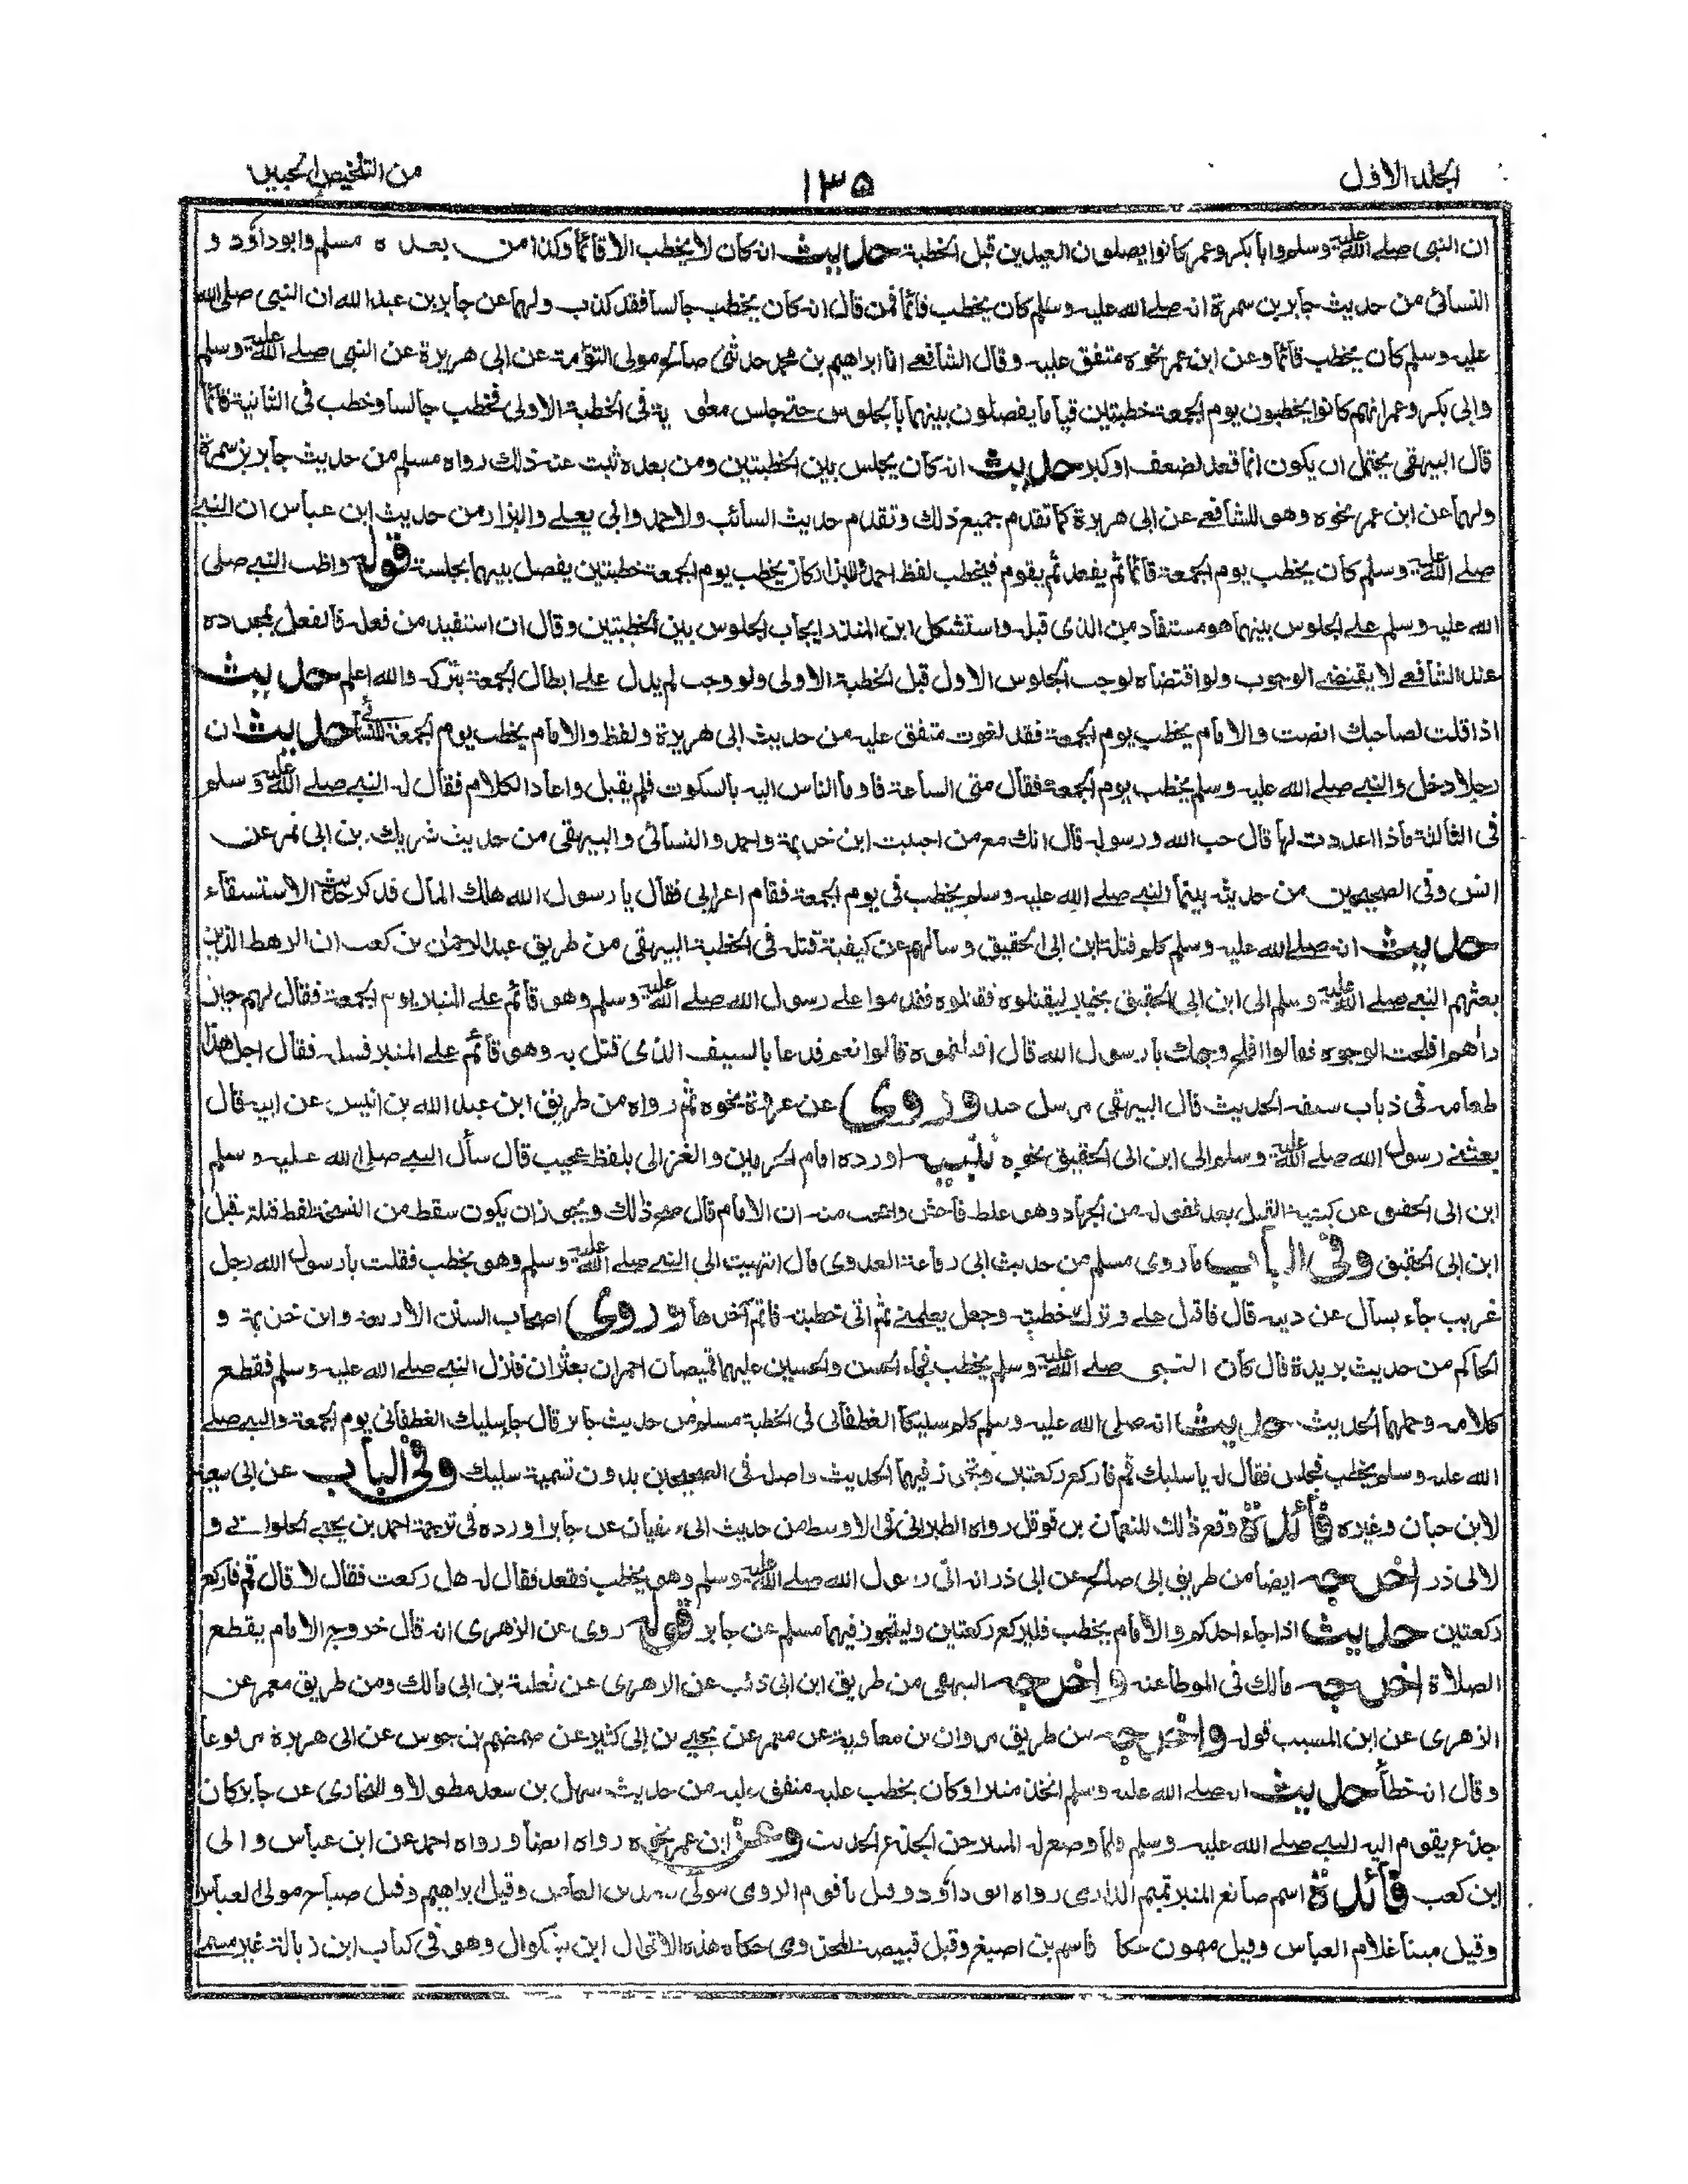 الجلد الاول ١٣٥ من التلخيص الحبير
ان النبي صلے الله عليه وسلم وابا بكر وعمر كانوا يصلون العيدين قبل الخطبة حديث انه كان لا يخطب الا قائما وكذا من بعده مسلم وابو داؤد و
النسائی من حديث جابر بن سمرة انه صلے الله عليه وسلم كان يخطب قائما فمن قال انه كان يخطب جالسا فقد كذب ولهما عن جابر بن عبد الله ان النبي صلى الله
عليه وسلم كان يخطب قائما وعن ابن عمر نحوه متفق عليه وقال الشافعے انا ابراهيم بن محمد حدثنى صالح مولى التوٴمة عن ابى هريرة عن النبي صلے الله عليه وسلم
وابى بكر وعمر انهم كانوا يخطبون يوم الجمعة خطبتين قياما يفصلون بينهما بالجلوس حتے جلس معاوية فى الخطبة الاولى فخطب جالسا وخطب فى الثانية قائما
قال البيهقى يحتمل ان يكون انما قعد لضعف او كبر حديث انه كان يجلس بين الخطبتين ومن بعده ثبت عنه ذلك رواه مسلم من حديث جابر بن سمرة
ولهما عن ابن عمر نحوه وهو للشافعے عن ابى هريرة كما تقدم جميع ذلك وتقدم حديث السائب ولاحمد وابى يعلے والبزار من حديث ابن عباس ان النبے
صلے الله عليه وسلم كان يخطب يوم الجمعة قائما ثم يقعد ثم يقوم فيخطب لفظ احمد وللبزار كان يخطب يوم الجمعة خطبتين يفصل بينهما بجلسة قوله واظب النبے صلى
الله عليه وسلم علے الجلوس بينهما هو مستفاد من الذى قبله واستشكل ابن المنذر ايجاب الجلوس بين الخطبتين وقال ان استفيد من فعله فالفعل بمجرده
عند الشافعے لا يقتضے الوجوب ولو اقتضاه لوجب الجلوس الاول قبل الخطبة الاولى ولو وجب لم يدل علے ابطال الجمعة بتركه والله اعلم حديث
اذا قلت لصاحبك انصت والامام يخطب يوم الجمعة فقد لغوت متفق عليه من حديث ابى هريرة ولفظ والامام يخطب يوم الجمعة للنسائى حديث ان
رجلا دخل والنبے صلے الله عليه وسلم يخطب يوم الجمعة فقال متى الساعة فاوما الناس اليه بالسكوت فلم يقبل واعاد الكلام فقال له النبے صلے الله عليه وسلم
فى الثالثة ماذا اعددت لها قال حب الله ورسوله قال انك مع من احببت ابن خزيمة واحمد والنسائى والبيهقى من حديث شريك بن ابى نمر عن
انس وفى الصحيحين من حديثه بينما النبے صلے الله عليه وسلم يخطب فى يوم الجمعة فقام اعرابى فقال يا رسول الله هلك المال فذكر حديث الاستسقاء
حديث انه صلے الله عليه وسلم كلم قتلة ابن ابى الحقيق وسألهم عن كيفية قتله فى الخطبة البيهقى من طريق عبد الرحمن بن كعب ان الرهط الذين
بعثهم النبے صلے الله عليه وسلم الى ابن ابى الحقيق بخيبر ليقتلوه فقتلوه فقدموا على رسول الله صلے الله عليه وسلم وهو قائم علے المنبر يوم الجمعة فقال لهم حين
راهم افلحت الوجوه فقالوا افلح وجهك يا رسول الله قال اقتلتموه قالوا نعم فدعا بالسيف الذى قتل به وهو قائم علے المنبر فسله فقال اجل هذا
طعامه فى ذباب سيفه الحديث قال البيهقى مرسل جيد وروى عن عروة نحوه ثم رواه من طريق ابن عبد الله بن انيس عن ابيه قال
بعثنے رسول الله صلے الله عليه وسلم الى ابن ابى الحقيق نحوه تنبيه اورده امام الحرمين والغزالى بلفظ عجيب قال سأل النبے صلى الله عليه وسلم
ابن ابى الحقيق عن كيفية القتل بعد قفوله من الجهاد وهو غلط فاحش واعجب منه ان الامام قال صح ذلك ويجوز ان يكون سقط من النسخة لفظ قتلة قبل
ابن ابى الحقيق وفى الباب ما روى مسلم من حديث ابى رفاعة العدوى قال انتهيت الى النبے صلے الله عليه وسلم وهو يخطب فقلت يا رسول الله رجل
غريب جاء يسأل عن دينه قال فاقبل علے وترك خطبته وجعل يعلمنے ثم اتى خطبته فاتم آخرها وروى اصحاب السنن الاربعة وابن خزيمة و
الحاكم من حديث بريدة قال كان النبى صلے الله عليه وسلم يخطب فجاء الحسن والحسين عليهما قميصان احمران يعثران فنزل النبے صلے الله عليه وسلم فقطع
كلامه وحملهما الحديث حديث انه صلى الله عليه وسلم كلم سليكا الغطفانى فى الخطبة مسلم من حديث جابر قال جاء سليك الغطفانى يوم الجمعة والنبے صلے
الله عليه وسلم يخطب فجلس فقال له يا سليك قم فاركع ركعتين وتجوز فيهما الحديث واصله فى الصحيحين بدون تسمية سليك وفى الباب عن ابى سعيد
لابن حبان وغيره فائدة وقع ذلك للنعمان بن قوقل رواه الطبرانى فى الاوسط من حديث ابى سفيان عن جابر اورده فى ترجمة احمد بن يحيے الحلوانے و
لابى ذر اخرجه ايضا من طريق ابى صالح عن ابى ذر انه اتى رسول الله صلے الله عليه وسلم وهو يخطب فقعد فقال له هل ركعت فقال لا قال قم فاركع
ركعتين حديث اذا جاء احدكم والامام يخطب فليركع ركعتين وليتجوز فيهما مسلم عن جابر قوله روى عن الزهرى انه قال خروج الامام يقطع
الصلاة اخرجه مالك فى الموطا عنه واخرجه البيهقى من طريق ابن ابى ذئب عن الزهرى عن ثعلبة بن ابى مالك ومن طريق معمر عن
الزهرى عن ابن المسيب قوله واخرجه من طريق مروان بن معاوية عن معمر عن يحيے بن ابى كثير عن ضمضم بن جوس عن ابى هريرة مرفوعا
وقال انه خطأ حديث انه صلے الله عليه وسلم اتخذ منبرا وكان يخطب عليه متفق عليه من حديث سهل بن سعد مطولا والبخارى عن جابر كان
جذع يقوم اليه النبے صلے الله عليه وسلم فلما وضع له المنبر حن الجذع الحديث وعن ابن عمر نحوه رواه ايضا ورواه احمد عن ابن عباس وابى
ابن كعب فائدة اسم صانع المنبر تميم الدارى رواه ابو داؤد وقيل باقوم الرومى مولى سعيد بن العاص وقيل ابراهيم وقيل صباح مولى العباس
وقيل مينا غلام العباس وقيل ميمون حكاه قاسم بن اصبغ وقيل قبيصة المخزومى حكاه هذه الاقوال ابن بشكوال وهو فى كتاب ابن زبالة غير مسمى